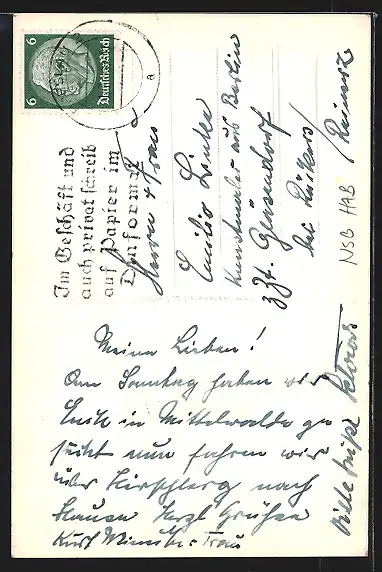 6 Deutsches Reich 6
BRESLAU 2
a
Im Geschäft und
auch privat schreib
auf Papier im
Dinformat
Herrn u Frau
Emilio Linke
Kunstmaler aus Berlin
z. Zt. Gersdorf
bei
NSB HAB
Meine Lieben!
Am Sonntag haben wir
Euch in Mittelwalde ge
sucht nun fahren wir
über Hirschberg nach
Hause Herzl Grüße
Kurt u Frau
viele Grüße